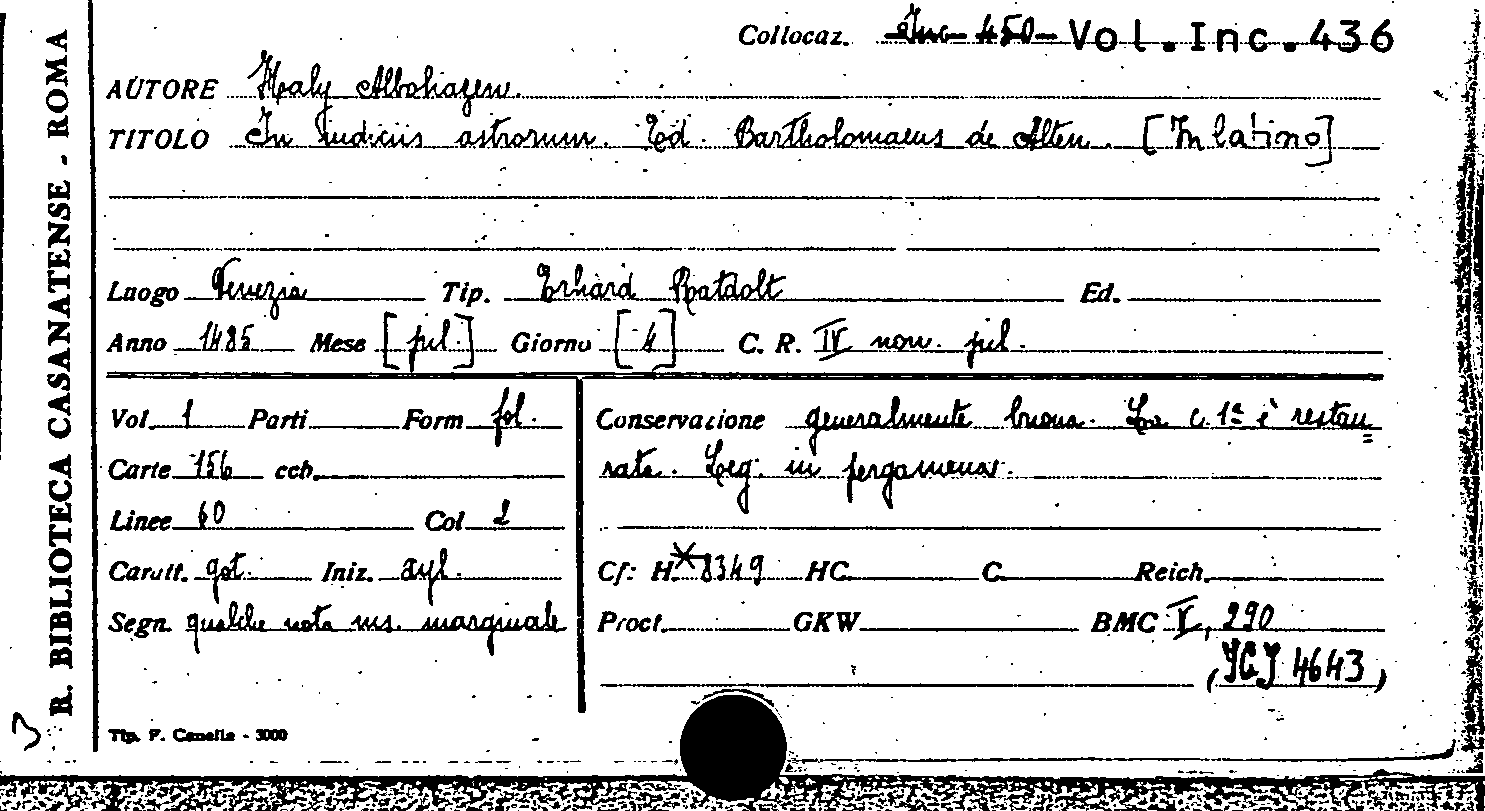 R. BIBLIOTECA CASANATENSE - ROMA
Collocaz. Inc 450 Vol.Inc.436
AUTORE Haly Albohazen.
TITOLO In iudiciis astrorum. Ed. Bartholomaeus de Alten. [In latino]
Luogo Venezia Tip. Erhard Ratdolt Ed.
Anno 1485 Mese [jul.] Giorno [4] C. R. IV non. jul.
Vol. 1 Parti Form fol.
Carte 156 ccb.
Linee 60 Col 2
Caratt. got. Iniz. xyl.
Segn. qualche nota ms. marginale
Conservazione generalmente buona. La c. 1ª è restau=
rata. Leg. in pergamena.
Cf: H.* 8349 HC. C. Reich.
Proct. GKW BMC V, 290
(IGI 4643)
Tip. F. Canella - 3000
3